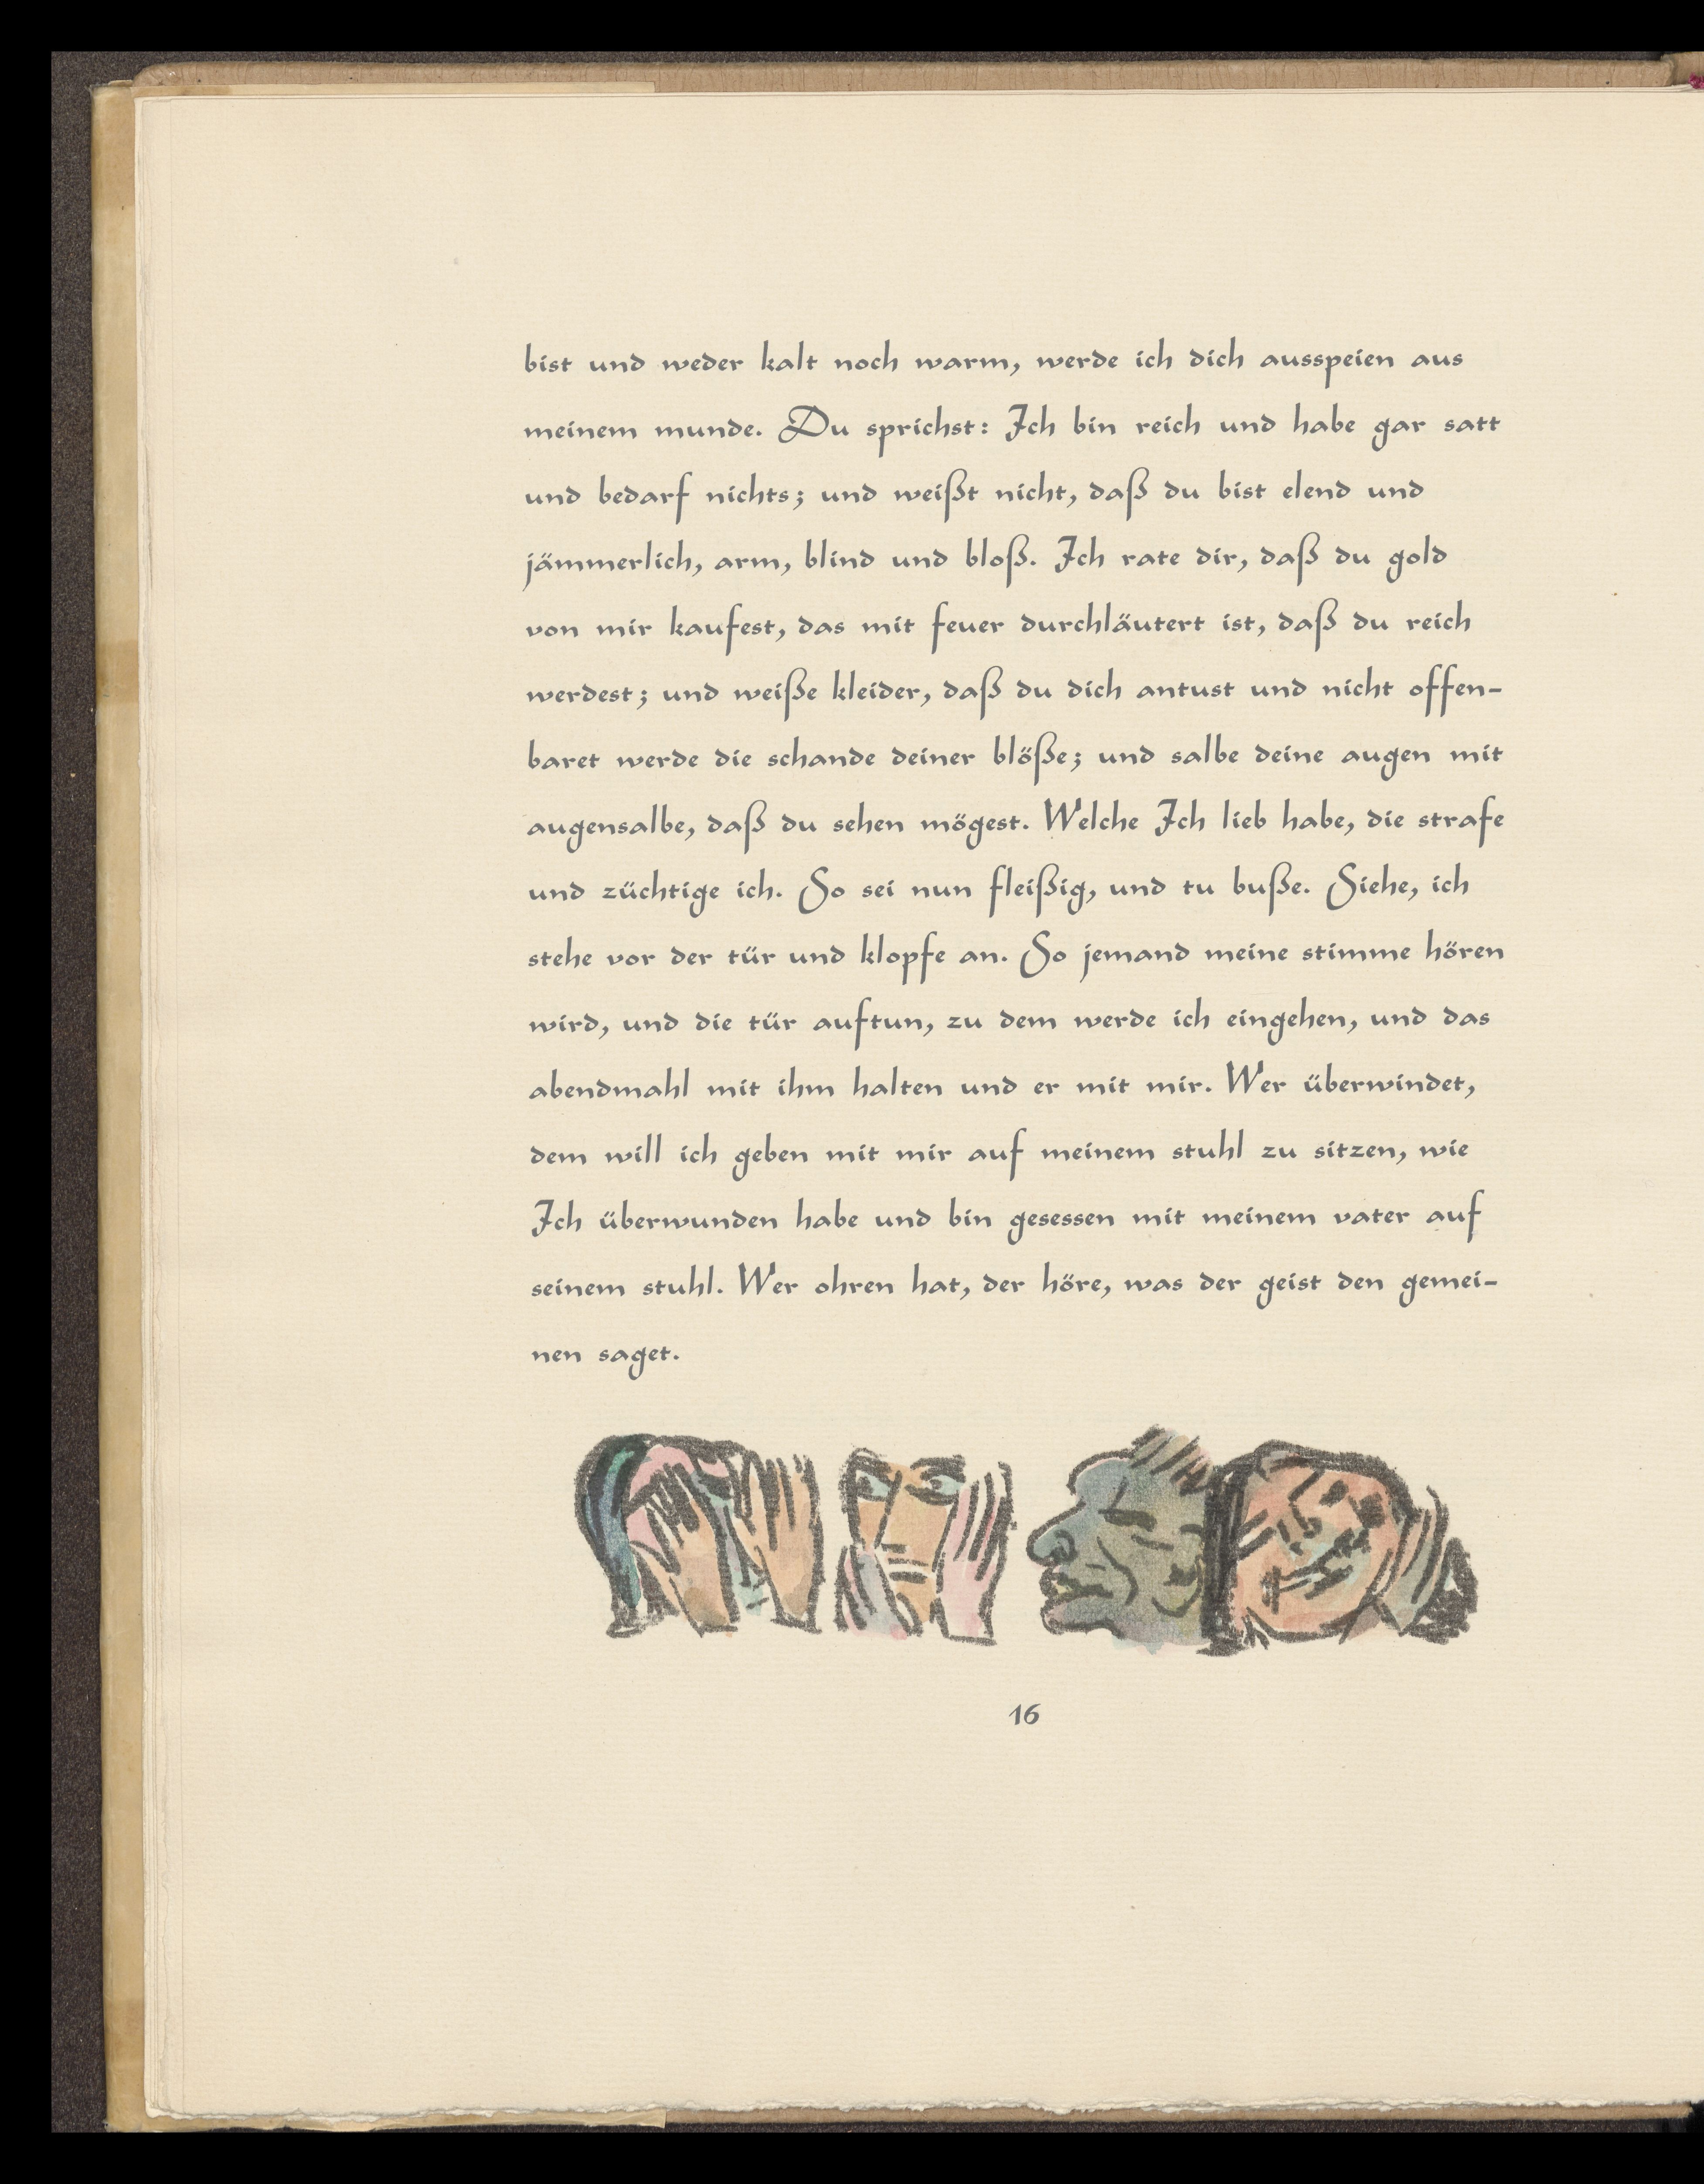 bist und weder kalt noch warm, werde ich dich ausspeien aus
meinem munde. Du sprichst: Ich bin reich und habe gar satt
und bedarf nichts; und weißt nicht, daß du bist elend und
jämmerlich, arm, blind und bloß. Ich rate dir, daß du gold
von mir kaufest, das mit feuer durchläutert ist, daß du reich
werdest; und weiße kleider, daß du dich antust und nicht offen-
baret werde die schande deiner blöße; und salbe deine augen mit
augensalbe, daß du sehen mögest. Welche Ich lieb habe, die strafe
und züchtige ich. So sei nun fleißig, und tu buße. Siehe, ich
stehe vor der tür und klopfe an. So jemand meine stimme hören
wird, und die tür auftun, zu dem werde ich eingehen, und das
abendmahl mit ihm halten und er mit mir. Wer überwindet,
dem will ich geben mit mir auf meinem stuhl zu sitzen, wie
Ich überwunden habe und bin gesessen mit meinem vater auf
seinem stuhl. Wer ohren hat, der höre, was der geist den gemei-
nen saget.
16